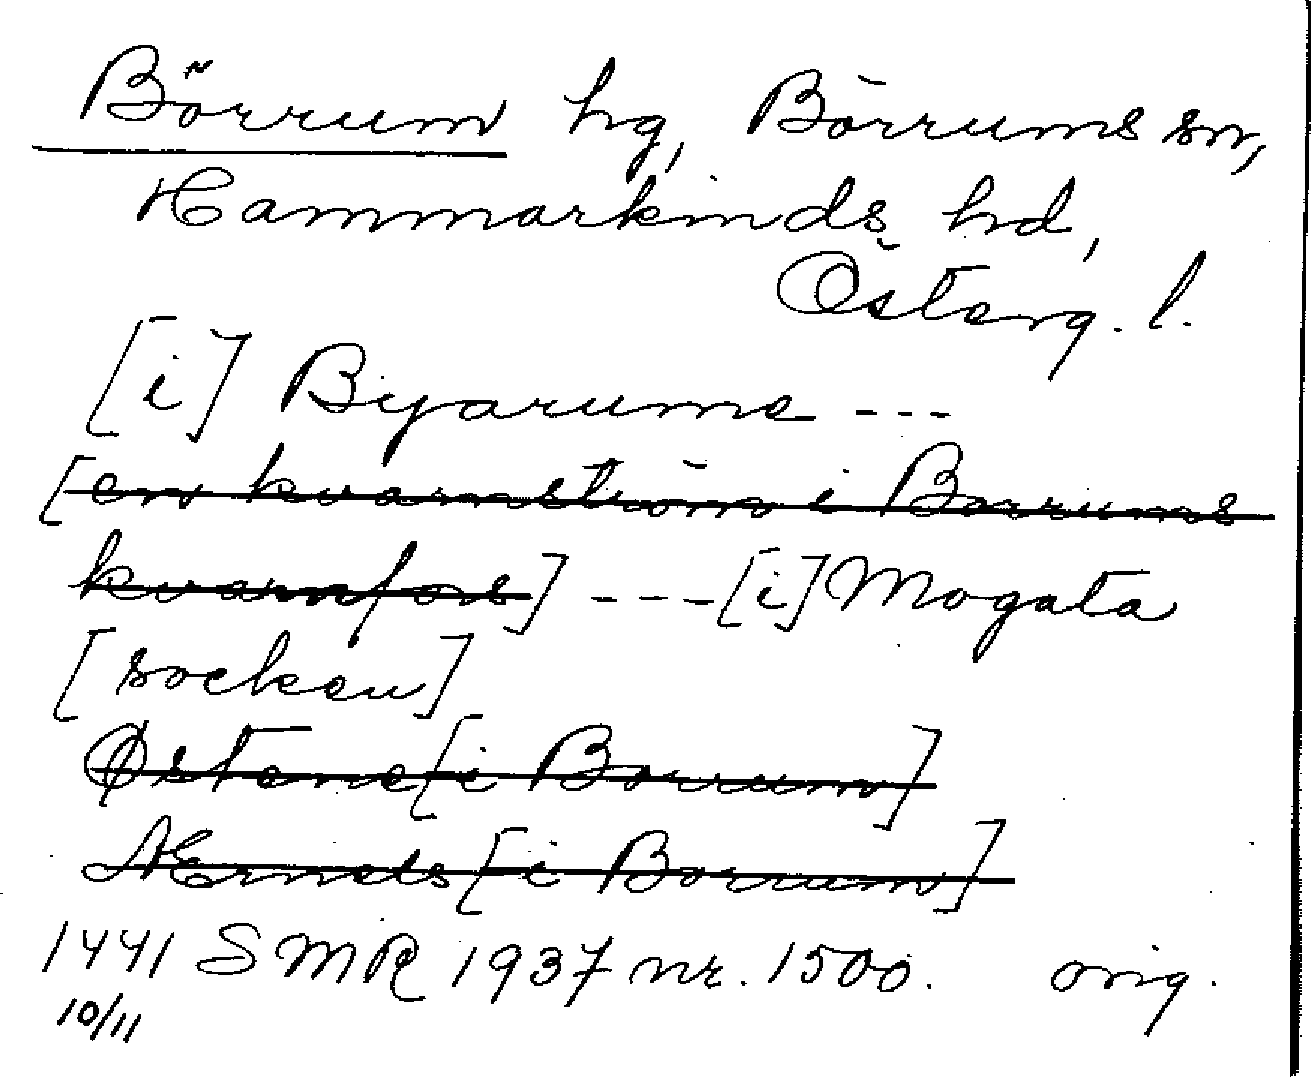 Börrum hg, Börrums sn,
Hammarkinds hd,
Österg. l.
[i] Byarums ---
[en kvarnström i Borrums
kvarnfors] ---- [i] Mogata
[socken]
Østene [i Borrum]
Ærnels [i Borrum]
1441 SMR 1937 nr. 1500. orig.
10/11